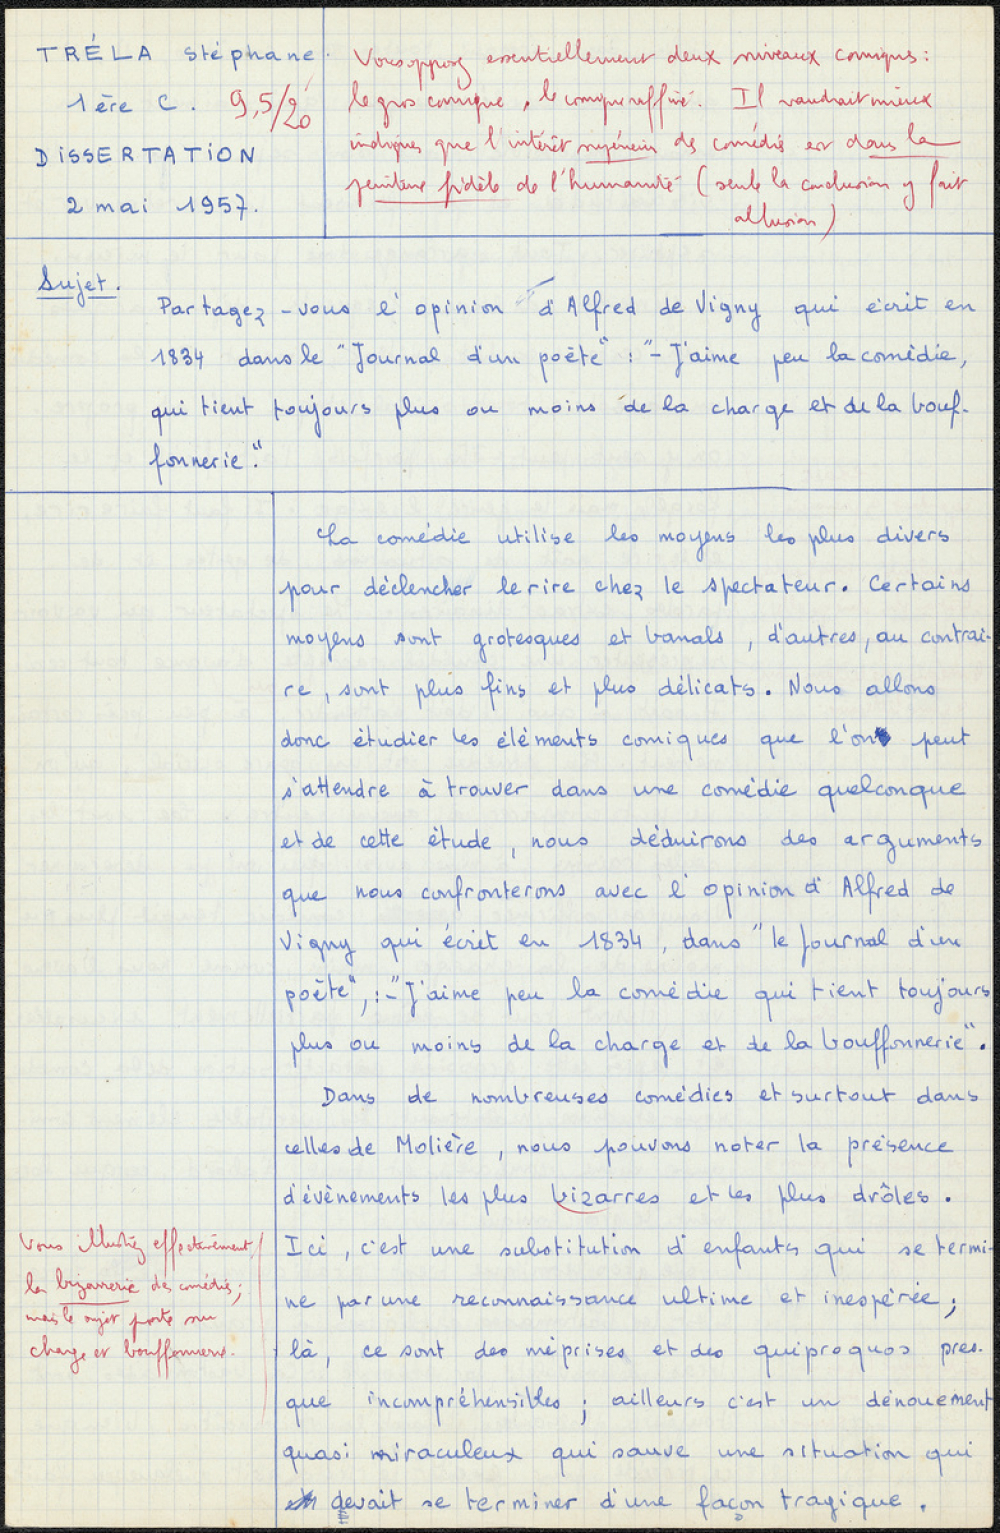 TRÉLA Stéphane.
1ère C. 9,5/20
DISSERTATION
2 mai 1957.
Vous opposez essentiellement deux niveaux comiques :
le gros comique, le comique raffiné. Il vaudrait mieux
indiquer que l'intérêt supérieur des comédies est dans la
peinture fidèle de l'humanité (seule la conclusion y fait
allusion)
Sujet.
Partagez-vous l'opinion d'Alfred de Vigny qui écrit en
1834 dans le "Journal d'un poète" : "- J'aime peu la comédie,
qui tient toujours plus ou moins de la charge et de la bouf-
fonnerie".
La comédie utilise les moyens les plus divers
pour déclencher le rire chez le spectateur. Certains
moyens sont grotesques et banals, d'autres, au contrai-
re, sont plus fins et plus délicats. Nous allons
donc étudier les éléments comiques que l'on peut
s'attendre à trouver dans une comédie quelconque
et de cette étude, nous déduirons des arguments
que nous confronterons avec l'opinion d'Alfred de
Vigny qui écrit en 1834, dans "le Journal d'un
poète", : - "J'aime peu la comédie qui tient toujours
plus ou moins de la charge et de la bouffonnerie".
Dans de nombreuses comédies et surtout dans
celles de Molière, nous pouvons noter la présence
d'évènements les plus bizarres et les plus drôles.
Vous illustrez effectivement
la bizarrerie des comédies ;
mais le sujet porte sur
charge et bouffonnerie.
Ici, c'est une substitution d'enfants qui se termi-
ne par une reconnaissance ultime et inespérée ;
là, ce sont des méprises et des quiproquos pres-
que incompréhensibles ; ailleurs c'est un dénouement
quasi miraculeux qui sauve une situation qui
devait se terminer d'une façon tragique.